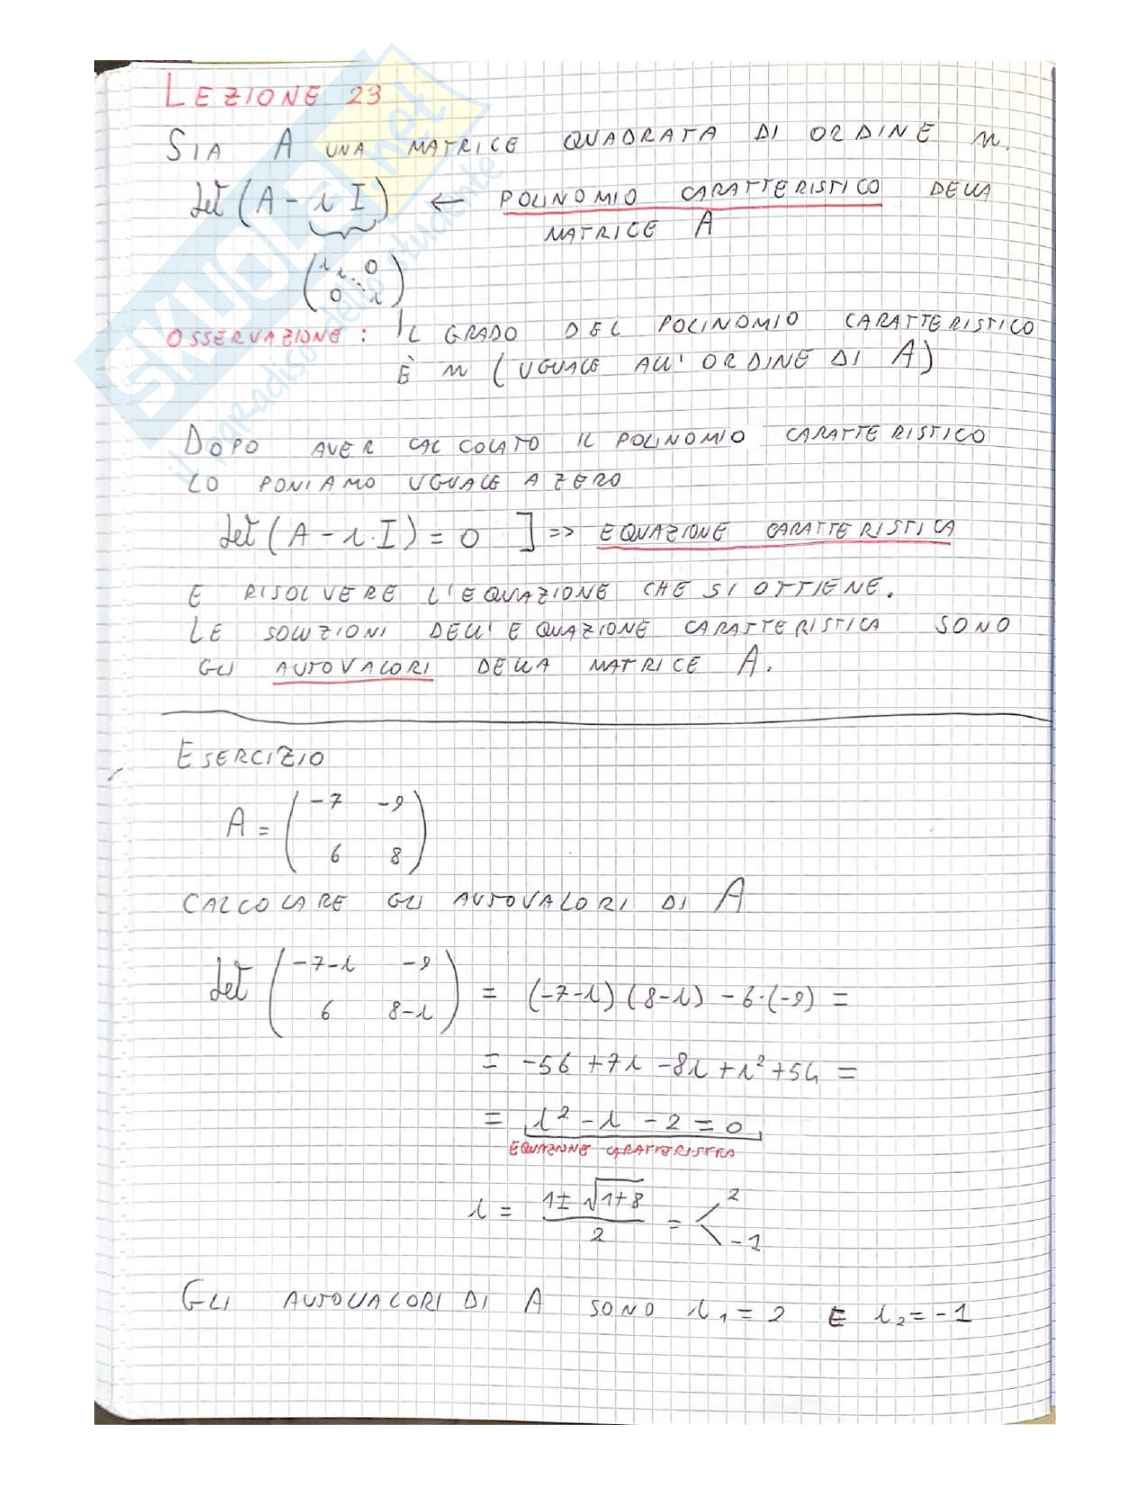 LEZIONE 23
SIA A UNA MATRICE QUADRATA DI ORDINE n.
det (A - λ I) ← POLINOMIO CARATTERISTICO DELLA
MATRICE A
(λ λ ⋱ 0
0 λ)
OSSERVAZIONE : IL GRADO DEL POLINOMIO CARATTERISTICO
È n (UGUALE ALL' ORDINE DI A)
DOPO AVER CALCOLATO IL POLINOMIO CARATTERISTICO
LO PONIAMO UGUALE A ZERO
det (A - λ·I) = 0 ] => EQUAZIONE CARATTERISTICA
E RISOLVERE L'EQUAZIONE CHE SI OTTIENE.
LE SOLUZIONI DELL' EQUAZIONE CARATTERISTICA SONO
GLI AUTOVALORI DELLA MATRICE A.
ESERCIZIO
A = (-7 -9
6 8)
CALCOLARE GLI AUTOVALORI DI A
det (-7-λ -9
6 8-λ) = (-7-λ) (8-λ) - 6·(-9) =
= -56 +7λ -8λ +λ² +54 =
= λ² - λ - 2 = 0
EQUAZIONE CARATTERISTICA
λ = (1 ± √1+8) / 2 = < 2
-1
GLI AUTOVALORI DI A SONO λ₁ = 2 E λ₂ = -1
SKUOLA.net
il paradiso dello studente